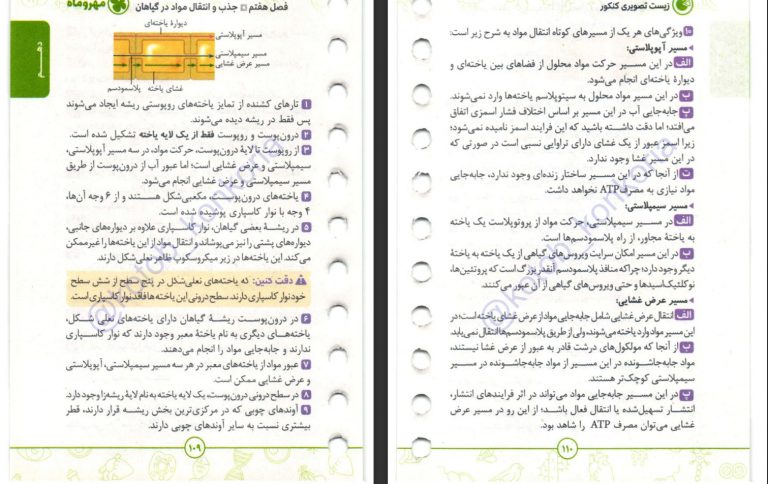 مهروماه
فصل هفتم جذب و انتقال مواد در گیاهان
دهم
دیوارهٔ یاخته‌ای
مسیر آپوپلاستی
مسیر سیمپلاستی
مسیر عرض غشایی
غشای یاخته پلاسمودسم
۱ تارهای کشنده از تمایز یاخته‌های روپوستی ریشه ایجاد می‌شوند
پس فقط در ریشه دیده می‌شوند.
۲ درون‌پوست و روپوست فقط از یک لایه یاخته تشکیل شده است.
۳ از روپوست تا لایهٔ درون‌پوست، حرکت مواد، در سه مسیر آپوپلاستی،
سیمپلاستی و عرض غشایی است؛ اما عبور آب از درون‌پوست از طریق
مسیر سیمپلاستی و عرض غشایی انجام می‌شود.
۴ یاخته‌های درون‌پوست، مکعبی‌شکل هستند و از ۶ وجه آن‌ها،
۴ وجه با نوار کاسپاری پوسیده شده است.
۵ در ریشهٔ بعضی گیاهان، نوار کاسپاری علاوه بر دیواره‌های جانبی،
دیواره‌های پشتی را نیز می‌پوشاند و انتقال مواد از این یاخته‌ها را غیرممکن
می‌کند. این یاخته‌ها در زیر میکروسکوپ ظاهر نعلی‌شکل دارند.
دقت کنین: که یاخته‌های نعلی‌شکل در پنج سطح از شش سطح
خود نوار کاسپاری دارند. سطح درونی این یاخته‌ها فاقد نوار کاسپاری است.
۶ در درون‌پوست ریشهٔ گیاهان دارای یاخته‌های نعلی شکل،
یاخته‌های دیگری به نام یاختهٔ معبر وجود دارند که نوار کاسپاری
ندارند و جابه‌جایی مواد را انجام می‌دهند.
۷ عبور مواد از یاخته‌های معبر در هر سه مسیر سیمپلاستی، آپوپلاستی
و عرض غشایی ممکن است.
۸ در سطح درونی درون‌پوست، یک لایه یاخته به نام لایهٔ ریشه‌زا وجود دارد.
۹ آوندهای چوبی که در مرکزی‌ترین بخش ریشه قرار دارند، قطر
بیشتری نسبت به سایر آوندهای چوبی دارند.
۱۰۹
@kotob_konkoria
زیست تصویری کنکور
۱۰ ویژگی‌های هر یک از مسیرهای کوتاه انتقال مواد به شرح زیر است:
مسیر آپوپلاستی:
الف در این مسیر حرکت مواد محلول از فضاهای بین یاخته‌ای و
دیوارهٔ یاخته‌ای انجام می‌شود.
ب در این مسیر مواد محلول به سیتوپلاسم یاخته‌ها وارد نمی‌شوند.
پ جابه‌جایی آب در این مسیر بر اساس اختلاف فشار اسمزی اتفاق
می‌افتد؛ اما دقت داشته باشید که این فرایند اسمز نامیده نمی‌شود؛
زیرا اسمز عبور از یک غشای دارای تراوایی نسبی است در صورتی که
در این مسیر غشا وجود ندارد.
ت از آنجا که در این مسیر ساختار زنده‌ای وجود ندارد، جابه‌جایی
مواد نیازی به مصرف ATP نخواهد داشت.
مسیر سیمپلاستی:
الف در مسیر سیمپلاستی، حرکت مواد از پروتوپلاست یک یاخته
به یاختهٔ مجاور، از راه پلاسمودسم‌ها است.
ب در این مسیر امکان سرایت ویروس‌های گیاهی از یک یاخته به یاختهٔ
دیگر وجود دارد؛ چراکه منافذ پلاسمودسم آنقدر بزرگ است که پروتئین‌ها،
نوکلئیک‌اسیدها و حتی ویروس‌های گیاهی از آن عبور می‌کنند.
مسیر عرض غشایی:
الف انتقال عرض غشایی شامل جابه‌جایی مواد از عرض غشای یاخته است؛ در
این مسیر مواد وارد یاخته می‌شوند، ولی از طریق پلاسمودسم‌ها انتقال نمی‌یابد.
ب از آنجا که مولکول‌های درشت قادر به عبور از عرض غشا نیستند،
مواد جابه‌جاشونده در این مسیر از مواد جابه‌جاشونده در مسیر
سیمپلاستی کوچک‌تر هستند.
پ در این مسیر جابه‌جایی مواد می‌تواند در اثر فرایندهای انتشار،
انتشار تسهیل‌شده یا انتقال فعال باشد؛ از این رو در مسیر عرض
غشایی می‌توان مصرف ATP را شاهد بود.
۱۱۰
@kotob_konkoria